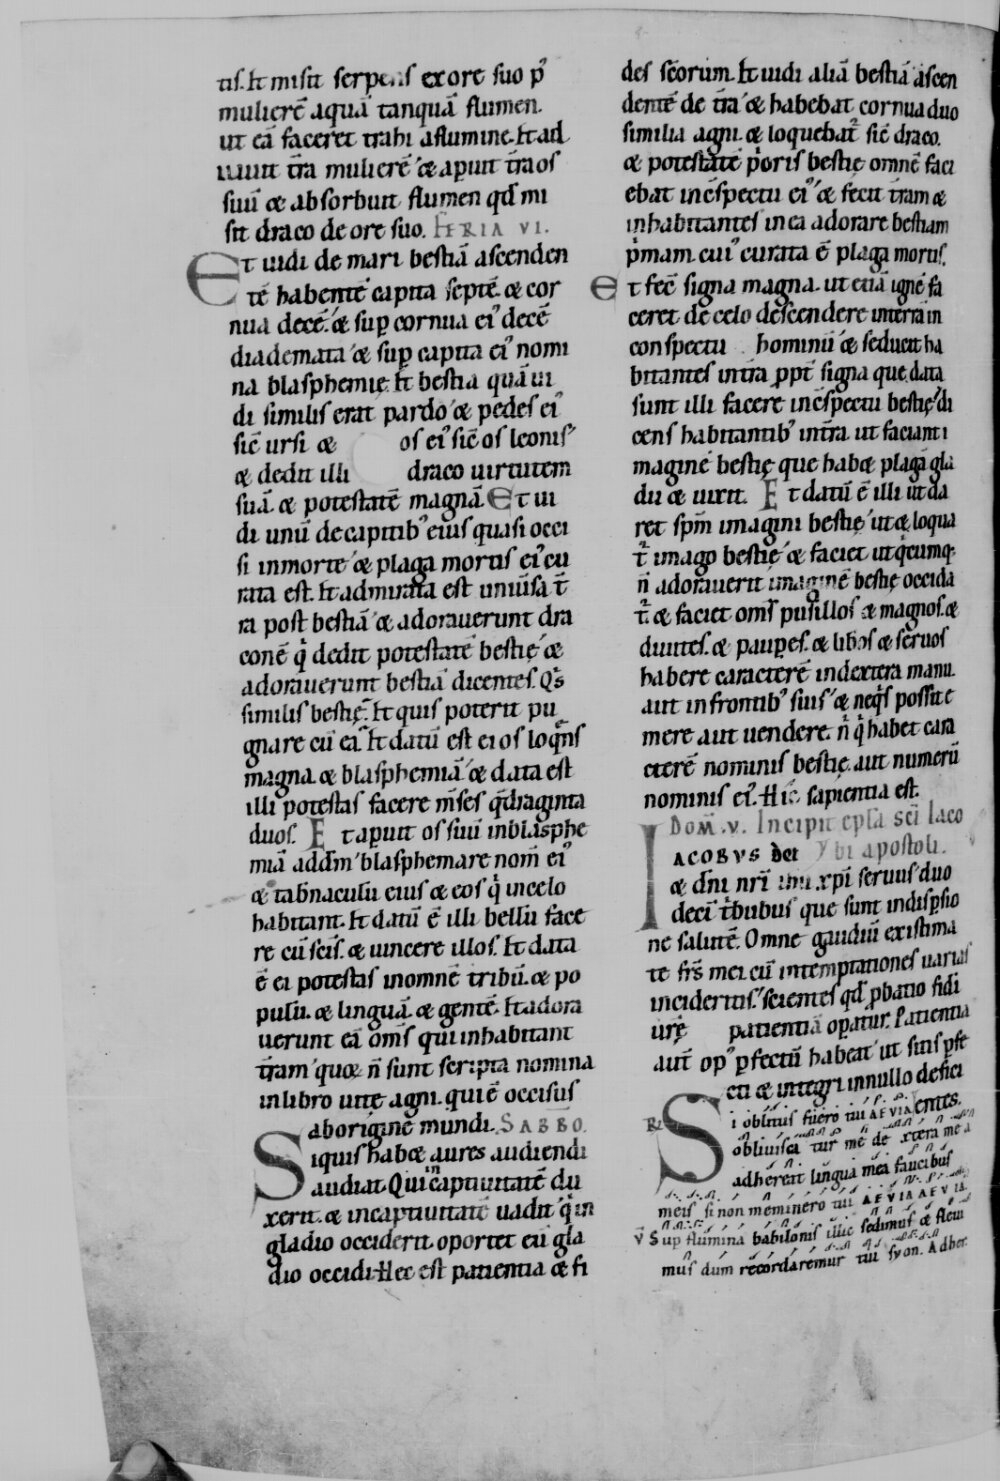 tis. Et misit serpens ex ore suo p̃
mulierē aquā tanquā flumen.
ut eā faceret trahi a flumine. Et ad
iuuit t̄ra mulierē & apuit t̄ra os
suū & absorbuit flumen qd̄ mi
sit draco de ore suo. FERIA VI.
Et uidi de mari bestiā ascenden
tē habentē capita septē. & cor
nua decē. & sup cornua ei᾽ decē
diademata & sup capita ei᾽ nomi
na blasphemię. Et bestia quā ui
di similis erat pardo & pedes ei᾽
sic̄ ursi & os ei᾽ sic̄ os leonis
& dedit illi draco uirtutem
suā. & potestatē magnā. Et ui
di unū de capitib᾽ eius quasi occi
si in morte & plaga mortis ei᾽ cu
rata est. Et admirata est uniūsa t̄
ra post bestiā & adorauerunt dra
conē q̇ dedit potestatē bestię &
adorauerunt bestiā dicentes. Q̇s
similis bestię. Et quis poterit pu
gnare cū ea. Et datū est ei os loq̄ns
magna & blasphemiā & data est
illi potestas facere m̄ses q̄draginta
duos. Et apuit os suū in blasphe
miā ad dm̄ blasphemare nom̄ ei᾽
& tabnaculū eius & eos q̇ in celo
habitant. Et datū ē illi bellū face
re cū sc̄is. & uincere illos. Et data
ē ei potestas in omnē tribū. & po
pulū. & linguā. & gentē. Et adora
uerunt eā om̄s qui inhabitant
t̄ram quoꝝ n̄ sunt scripta nomina
in libro uite agni. qui ē occisus
ab origine mundi. SABBO.
Siquis habet aures audiendi
audiat. Qui in captiuitatē du
xerit. & in captiuitatē uadit q̇ in
gladio occiderit. oportet eū gla
dio occidi. Hec est patientia & fi
des sc̄orum. Et uidi aliā bestiā ascen
dentē de t̄ra & habebat cornua duo
similia agni. & loquebat᾽ sic̄ draco.
& potestatē p̓oris bestię omnē faci
ebat in c̄spectu ei᾽ & fecit t̄ram &
inhabitantes in ea adorare bestiam
p̓mam. cui᾽ curata ē plaga mortis.
Et fec̄ signa magna. ut etiā ignē fa
ceret de celo descendere in terrā in
conspectu hominū & seducit ha
bitantes in t̄ra ꝓpt̄ signa que data
sunt illi facere in c̄spectu bestię di
cens habitantib᾽ in t̄ra. ut faciant i
maginē bestię que habet plagā gla
dii & uixit. Et datū ē illi ut da
ret spm̄ imagini bestię ut & loqua
t᾽ imago bestię & faciet ut q̇cumq;
n̄ adorauerit imaginē bestię occida
t᾽ & faciet om̄s pusillos & magnos. &
diuites. & paupes. & libos & seruos
habere caracterē in dextera manu.
aut in frontib᾽ suis & neq̇s possit e
mere aut uendere. n̄ q̇ habet cara
cterē nominis bestię. aut numerū
nominis ei᾽. Hic sapientia est.
DOM̄. V. Incipit epl̄a sc̄i Iaco
IACOBVS dei bi apostoli.
& dn̄i nr̄i ihu xpi seruus duo
deci t̓bubus que sunt in dispsio
ne salutē. Omne gaudiū existima
te fr̄s mei cū in temptationes uarias
incideritis. scientes qd̄ ꝓbatio fidi
ūrę patientiā opatur. Patientia
aut̄ op᾽ pfectū habeat ut sitis pfe
cti & integri in nullo defici
entes.
R̷ Si oblitus fuero tui AEVIA
obliuisca tur me de xtera mea
adhereat lingua mea faucibus
meis si non meminero tui AEVIA AEVIA
V̄ Sup flumina babilonis illic sedimus & fleui
mus dum recordaremur tui syon. Adher